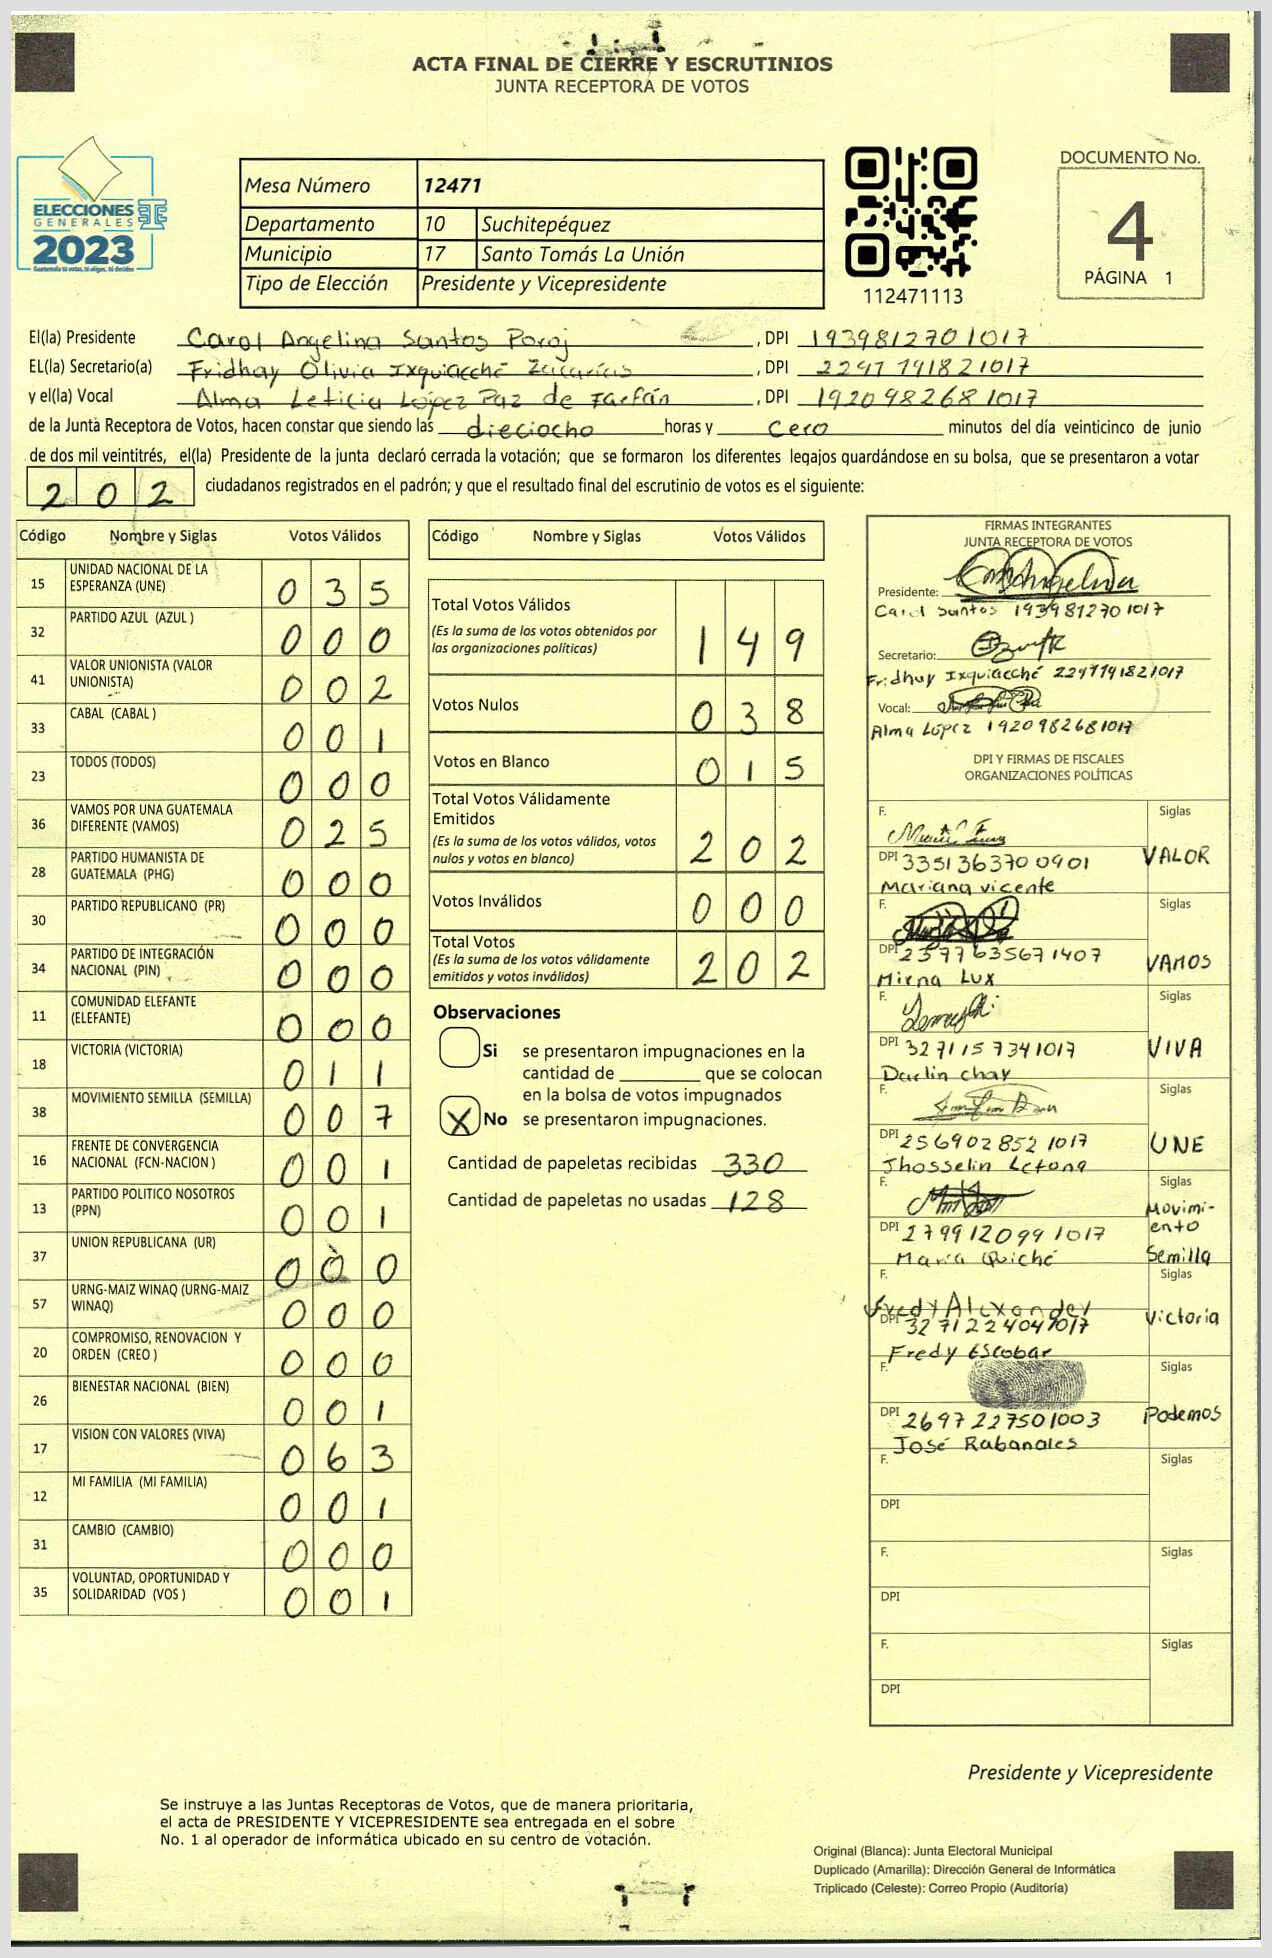 ACTA FINAL DE CIERRE Y ESCRUTINIOS
JUNTA RECEPTORA DE VOTOS
ELECCIONES
GENERALES
2023
Guatemala tú votas, tú eliges, tú decides
Mesa Número 12471
Departamento 10 Suchitepéquez
Municipio 17 Santo Tomás La Unión
Tipo de Elección Presidente y Vicepresidente
112471113
DOCUMENTO No.
4
PÁGINA 1
El(la) Presidente Carol Angelina Santos Poroj, DPI 1939812701017
EL(la) Secretario(a) Fridhay Olivia Ixquiacché Zacarías, DPI 2297791821017
y el(la) Vocal Alma Leticia López Paz de Farfán, DPI 1920982681017
de la Junta Receptora de Votos, hacen constar que siendo las dieciocho horas y Cero minutos del día veinticinco de junio
de dos mil veintitrés, el(la) Presidente de la junta declaró cerrada la votación; que se formaron los diferentes legajos guardándose en su bolsa, que se presentaron a votar
202 ciudadanos registrados en el padrón; y que el resultado final del escrutinio de votos es el siguiente:
Código Nombre y Siglas Votos Válidos
15 UNIDAD NACIONAL DE LA ESPERANZA (UNE) 035
32 PARTIDO AZUL (AZUL ) 000
41 VALOR UNIONISTA (VALOR UNIONISTA) 002
33 CABAL (CABAL ) 001
23 TODOS (TODOS) 000
36 VAMOS POR UNA GUATEMALA DIFERENTE (VAMOS) 025
28 PARTIDO HUMANISTA DE GUATEMALA (PHG) 000
30 PARTIDO REPUBLICANO (PR) 000
34 PARTIDO DE INTEGRACIÓN NACIONAL (PIN) 000
11 COMUNIDAD ELEFANTE (ELEFANTE) 000
18 VICTORIA (VICTORIA) 011
38 MOVIMIENTO SEMILLA (SEMILLA) 007
16 FRENTE DE CONVERGENCIA NACIONAL (FCN-NACION ) 001
13 PARTIDO POLITICO NOSOTROS (PPN) 001
37 UNION REPUBLICANA (UR) 000
57 URNG-MAIZ WINAQ (URNG-MAIZ WINAQ) 000
20 COMPROMISO, RENOVACION Y ORDEN (CREO ) 000
26 BIENESTAR NACIONAL (BIEN) 001
17 VISION CON VALORES (VIVA) 063
12 MI FAMILIA (MI FAMILIA) 001
31 CAMBIO (CAMBIO) 000
35 VOLUNTAD, OPORTUNIDAD Y SOLIDARIDAD (VOS ) 001
Código Nombre y Siglas Votos Válidos
Total Votos Válidos 149
(Es la suma de los votos obtenidos por
las organizaciones políticas)
Votos Nulos 038
Votos en Blanco 015
Total Votos Válidamente
Emitidos 202
(Es la suma de los votos válidos, votos
nulos y votos en blanco)
Votos Inválidos 000
Total Votos 202
(Es la suma de los votos válidamente
emitidos y votos inválidos)
Observaciones
Si se presentaron impugnaciones en la
cantidad de ________ que se colocan
en la bolsa de votos impugnados
X No se presentaron impugnaciones.
Cantidad de papeletas recibidas 330
Cantidad de papeletas no usadas 128
FIRMAS INTEGRANTES
JUNTA RECEPTORA DE VOTOS
Presidente:
Carol Santos 1939812701017
Secretario:
Fridhay Ixquiacché 2297791821017
Vocal:
Alma López 1920982681017
DPI Y FIRMAS DE FISCALES
ORGANIZACIONES POLÍTICAS
F. Siglas
DPI 3351363700901 VALOR
Mariana Vicente
F. Siglas
DPI 2377635671407 VAMOS
Mirna Lux
F. Siglas
DPI 3271157341017 VIVA
Darlin Chay
F. Siglas
DPI 2569028521017 UNE
Jhosselin Letona
F. Siglas
DPI 2799120991017 Movimiento Semilla
María Quiché
F. Siglas
Fredy Alexander
DPI 3271224041017 Victoria
Fredy Escobar
F. Siglas
DPI 2697227501003 Podemos
José Rabanales
F. Siglas
DPI
F. Siglas
DPI
F. Siglas
DPI
Presidente y Vicepresidente
Se instruye a las Juntas Receptoras de Votos, que de manera prioritaria,
el acta de PRESIDENTE Y VICEPRESIDENTE sea entregada en el sobre
No. 1 al operador de informática ubicado en su centro de votación.
Original (Blanca): Junta Electoral Municipal
Duplicado (Amarilla): Dirección General de Informática
Triplicado (Celeste): Correo Propio (Auditoría)